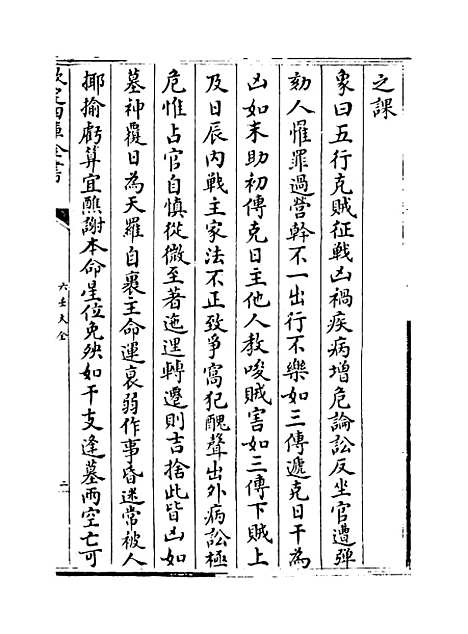 之課
象曰五行克賊征戰凶禍疾病增危論訟反坐官遭彈
劾人罹罪過營幹不一出行不樂如三傳遞克日干為
凶如末助初傳克日主他人教唆賊害如三傳下賊上
及日辰內戰主家法不正致爭窩犯醜聲出外病訟極
危惟占官自慎從微至著迤邐轉遷則吉捨此皆凶如
墓神覆日為天羅自裹主命運衰弱作事昏迷常被人
揶揄虧算宜醮謝本命星位免殃如干支逢墓兩空亡可
欽定四庫全書
六壬大全
二